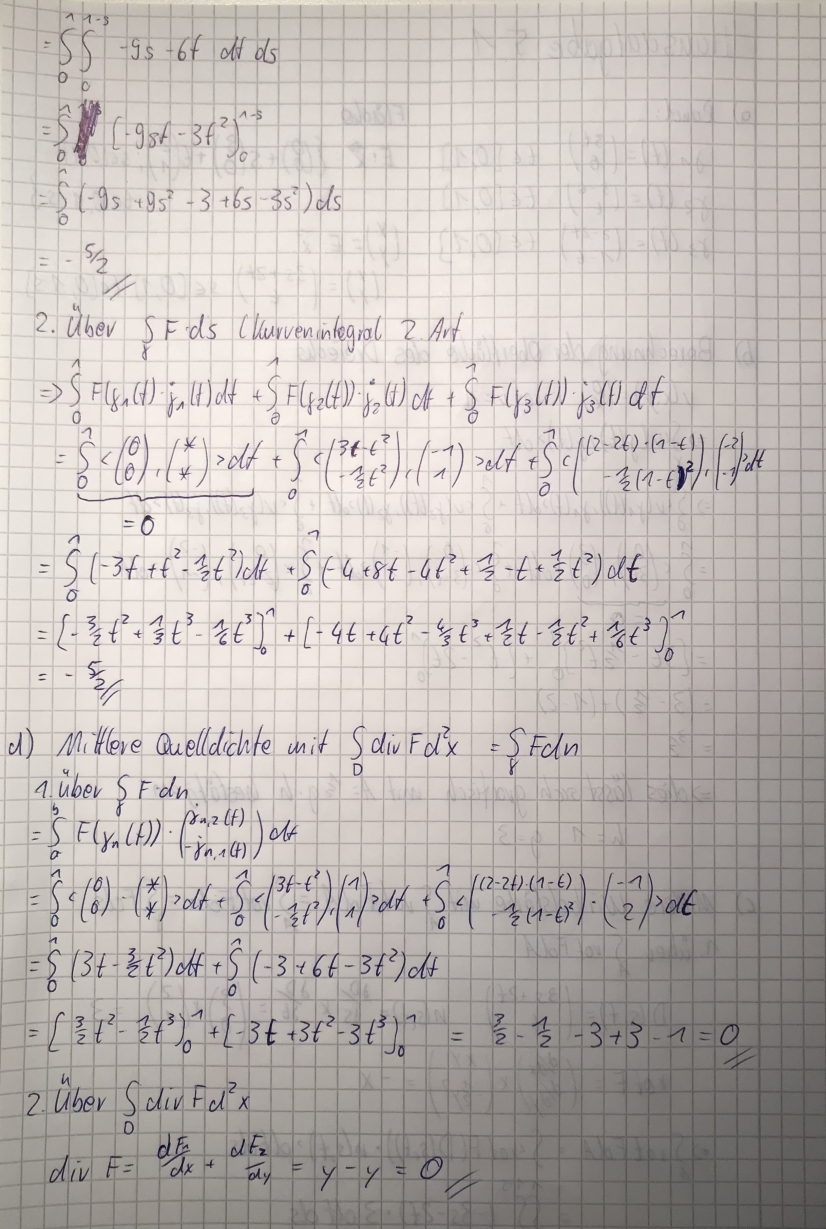 = ∫₀¹ ∫₀¹⁻ˢ -9s -6t dt ds
= ∫₀¹ [-9st - 3t²]₀¹⁻ˢ
= ∫₀¹ (-9s +9s² -3 +6s -3s²) ds
= - 5/2
2. Über ∫_γ F·ds (Kurvenintegral 2. Art
=> ∫₀¹ F(γ₁(t)·γ̇₁(t) dt + ∫₀¹ F(γ₂(t))·γ̇₂(t) dt + ∫₀¹ F(γ₃(t))·γ̇₃(t) dt
= ∫₀¹ <(0 0), (* *)> dt + ∫₀¹ <(3t-t² -½t²), (-1 1)> dt + ∫₀¹ <((2-2t)·(1-t) -½(1-t)²), (-2 -1)> dt
= 0
= ∫₀¹ (-3t +t² -½t²) dt + ∫₀¹ (-4 +8t -4t² +½ -t +½t²) dt
= [-3/2 t² + 1/3 t³ - 1/6 t³]₀¹ + [-4t +4t² -4/3 t³ +½t -½t² +1/6 t³]₀¹
= - 5/2
d) Mittlere Quelldichte mit ∫_D div F d²x = ∫_γ F dn
1. Über ∫_γ F·dn
= ∫ₐᵇ F(γₙ(t)) · (γ̇ₙ,₂(t) -γ̇ₙ,₁(t)) dt
= ∫₀¹ <(0 0) · (* *)> dt + ∫₀¹ <(3t-t² -½t²), (1 1)> dt + ∫₀¹ <((2-2t)·(1-t) -½(1-t)²) · (-1 2)> dt
= ∫₀¹ (3t - 3/2 t²) dt + ∫₀¹ (-3 +6t -3t²) dt
= [3/2 t² - ½t³]₀¹ + [-3t +3t² -3t³]₀¹ = 3/2 - 1/2 -3+3 -1 = 0
2. Über ∫_D div F d²x
div F = dF₁/dx + dF₂/dy = y - y = 0